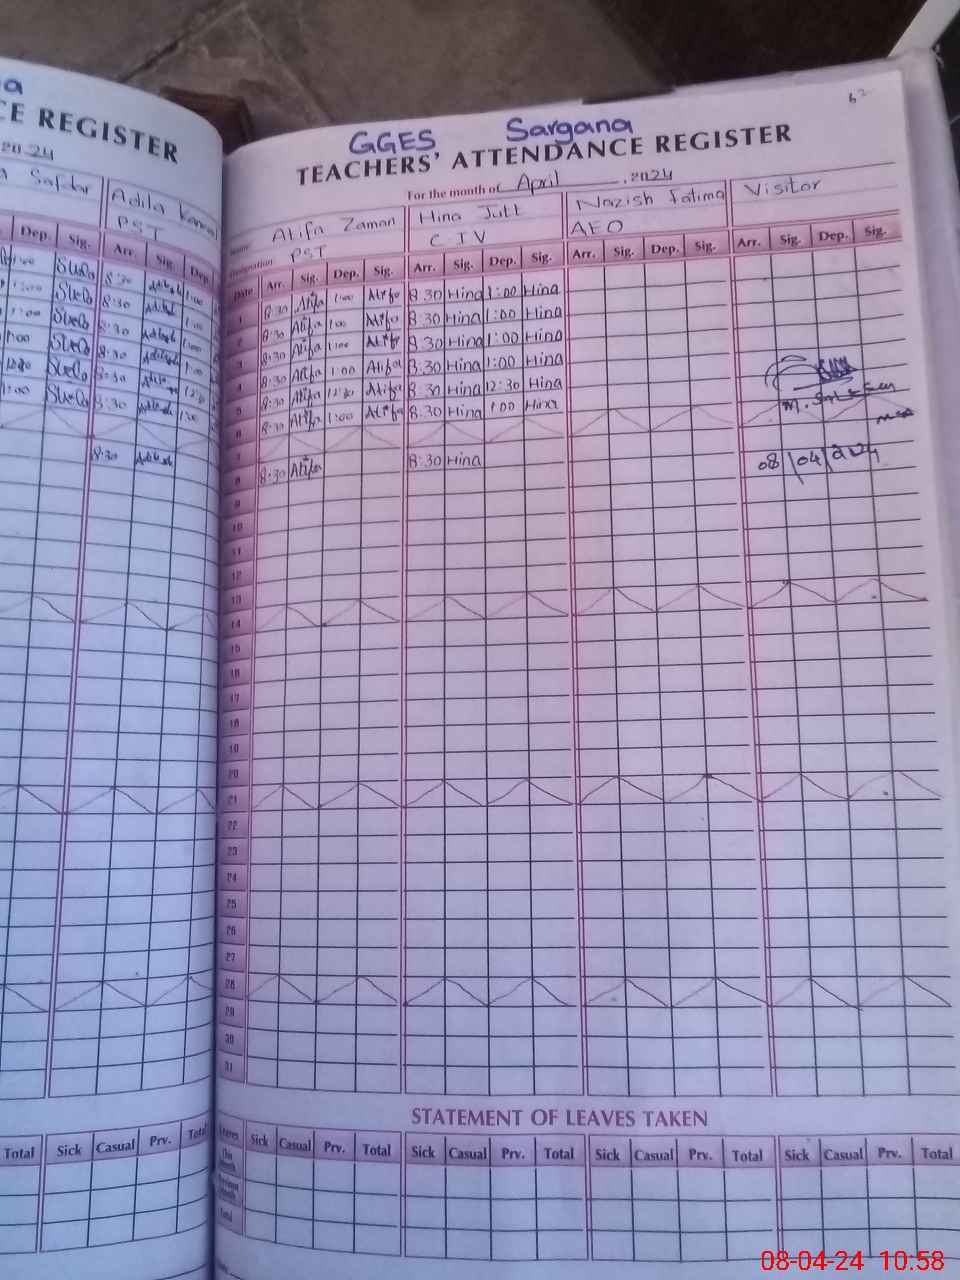 CE REGISTER
2024
Safdar
Adila
PST
Dep. Sig. Arr. Sig. Dep
1:00 8:30 1:00
1:00 8:30 1:00
1:00 8:30 1:00
1:00 8:30 1:00
8:30 12:30
1:00 8:30 1:00
8:30
Total Sick Casual Prv. Total
62
GGES Sargana
TEACHERS' ATTENDANCE REGISTER
For the month of April , 2024
Name Atifa Zaman Hina Jutt Nazish Fatima Visitor
Designation PST C T V AEO
Date Arr. Sig. Dep. Sig. Arr. Sig. Dep. Sig. Arr. Sig. Dep. Sig. Arr. Sig. Dep. Sig.
1 8:30 Atifa 1:00 Atifa 8:30 Hina 1:00 Hina
2 8:30 Atifa 1:00 Atifa 8:30 Hina 1:00 Hina
3 8:30 Atifa 1:00 Atifa 8:30 Hina 1:00 Hina
4 8:30 Atifa 1:00 Atifa 8:30 Hina 1:00 Hina
5 8:30 Atifa 12:30 Atifa 8:30 Hina 12:30 Hina
6 8:30 Atifa 1:00 Atifa 8:30 Hina 1:00 Hina
7
8 8:30 Atifa 8:30 Hina 08/04/2024
9
10
11
12
13
14
15
16
17
18
19
20
21
22
23
24
25
26
27
28
29
30
31
STATEMENT OF LEAVES TAKEN
Leaves Sick Casual Prv. Total Sick Casual Prv. Total Sick Casual Prv. Total Sick Casual Prv. Total
This Month
Previous Month
Total
08-04-24 10:58